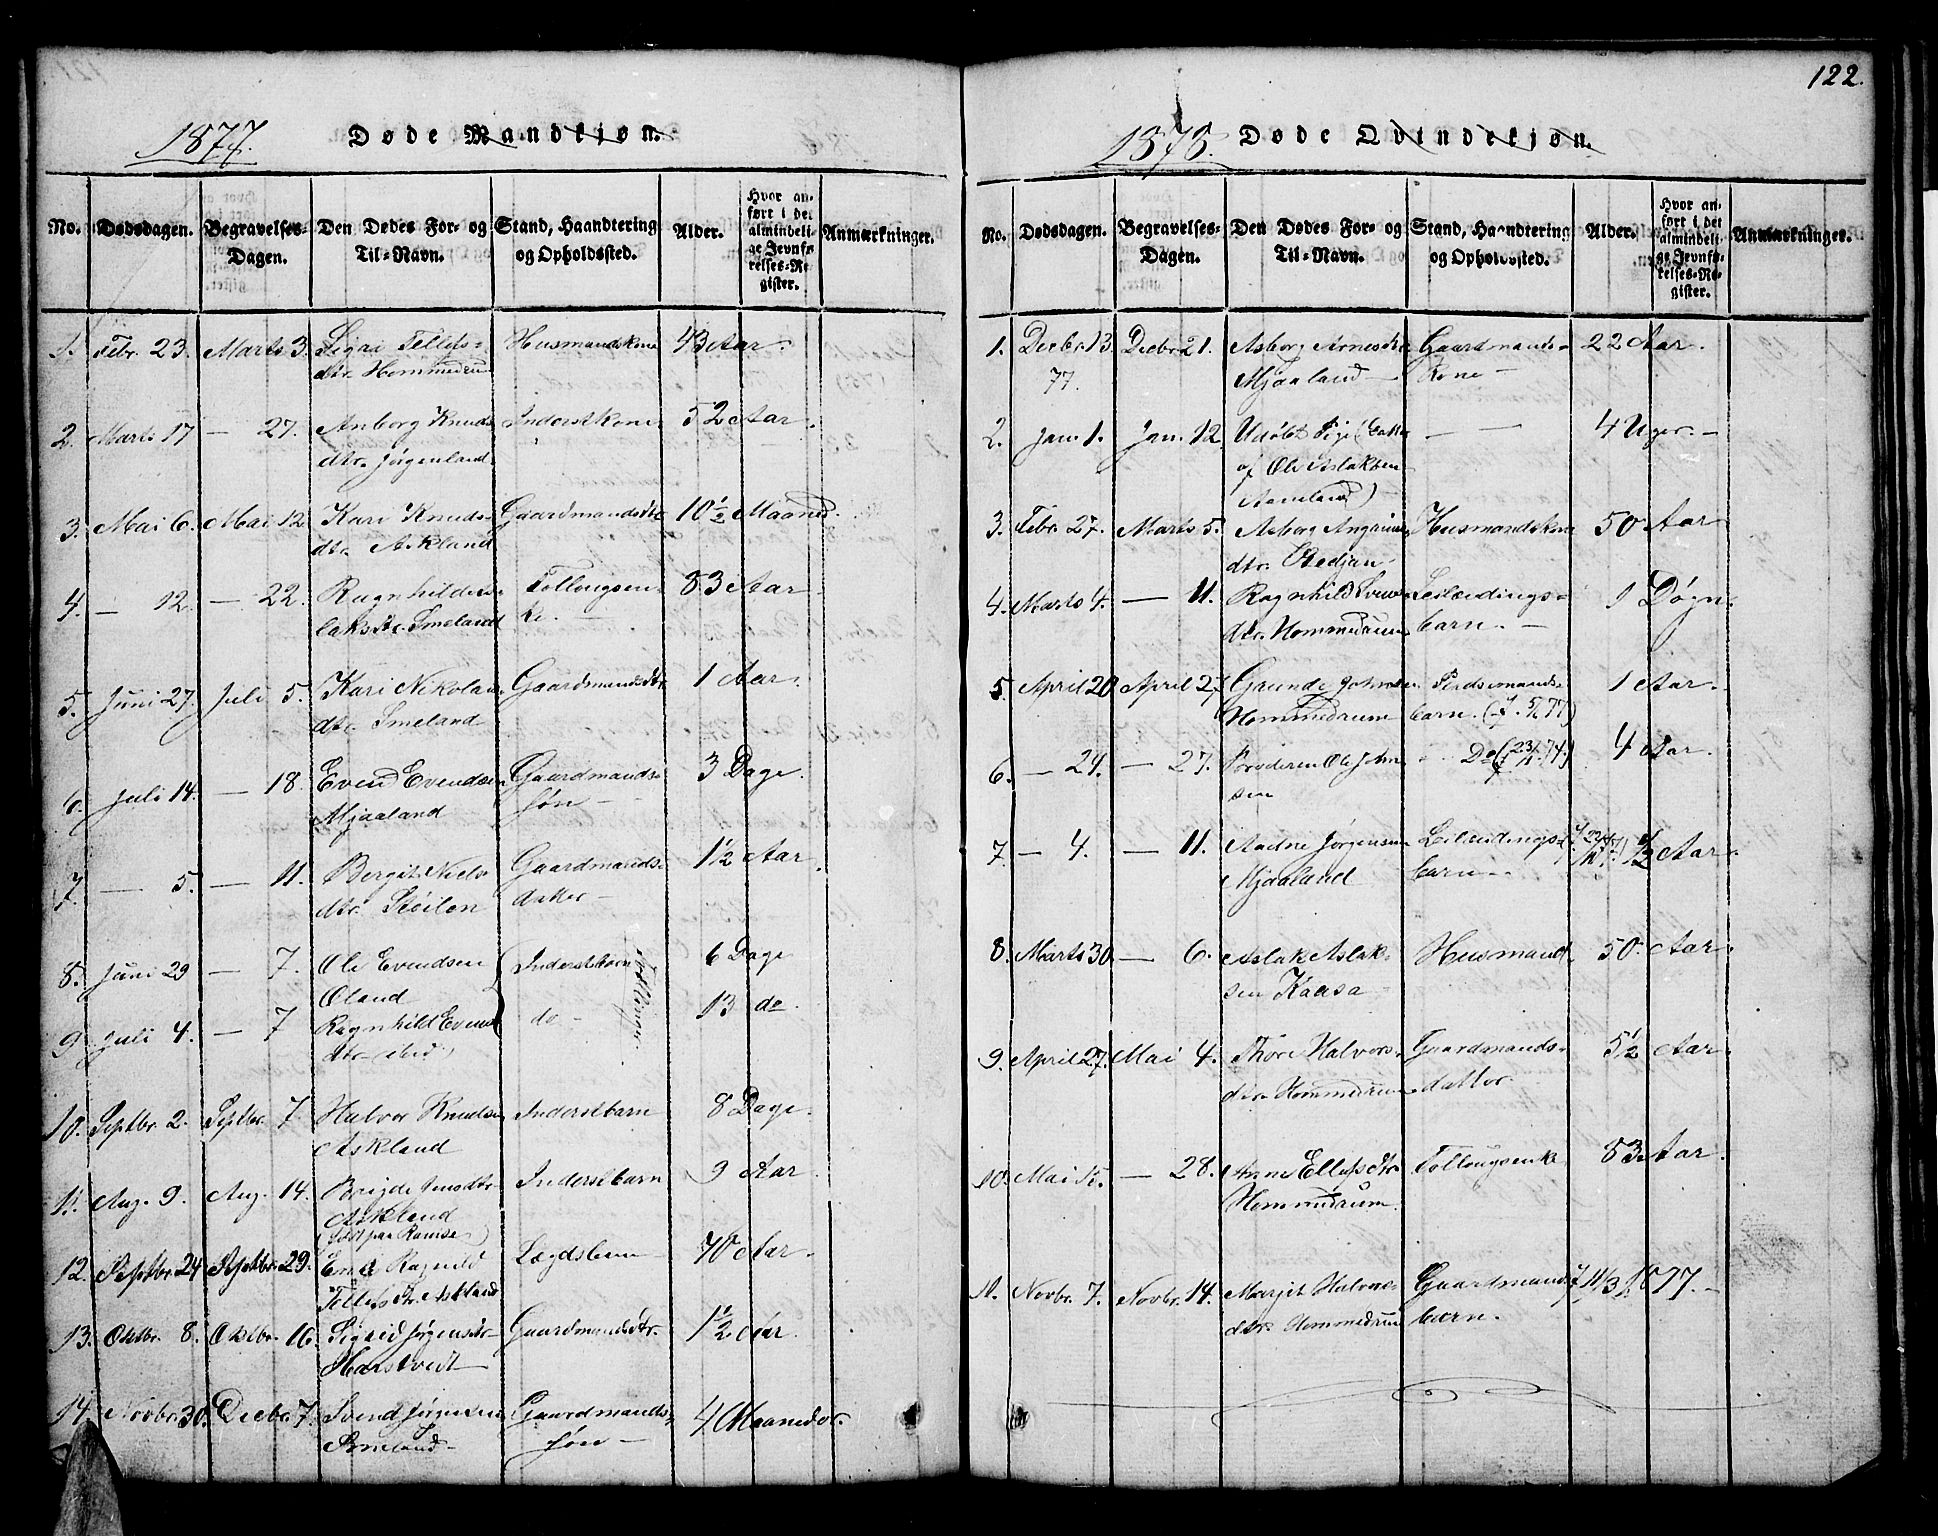 122.
1877. Døde Mandkjøn.
No. Dødsdagen. Begravelses-Dagen. Den Dødes For- og Til-Navn. Stand, Haandtering og Opholdssted. Alder. Hvor anført i det almindelige Jevnførelses-Register. Anmærkninger.
1. Febr. 23. Marts 3. Sigri Tellefs- Husmandskone 43 Aar.
dtr. Hommedrum
2. Marts 17 — 27. Anborg Knuds- Inderstkone 52 Aar.
dtr. Jørgenland
3. Mai 6. Mai 12. Kari Knuds- Gaardmandsdtr 10 1/2 Maaned
dtr. Askland
4. — 12. — 22. Ragnhild As- Follougsen- 83 Aar.
laksdtr. Smeland ke.
5. Juni 27. Juli 5. Kari Nikolai- Gaardmandsdtr 1 Aar.
dtr. Smeland
6. Juli 14. — 18. Evend Evendsen Gaardmands- 3 Dage.
Mjaaland søn —
7. — 5. — 11. Bergit Niels- Gaardmands- 1 1/2 Aar.
dtr. Støilen datter —
8. Juni 29 — 7. Ole Evendsen Inderstbørn 6 Dage
Øland
Tvillinger
9. Juli 4. — 7 Ragnhild Evends do — 13 do
dtr (ibid)
10. Septbr. 2. Septbr. 7. Halvor Knudsen Inderstbarn 8 Dage.
Askland
11. Aug. 9. Aug. 14. Inderstbarn 9 Aar
Askland
12. Septbr. 24 Septbr. 29. Enke Ragnild Lægdslem 70 Aar.
Tellefsdtr. Askland
13. Oktbr. 8. Oktbr. 16. Sigrid Jørgensdtr Gaardmandsdtr. 1 1/2 Aar.
Harstvedt
14. Novbr. 30. Decbr. 7. Svend Jørgensen Gaardmands- 4 Maaneder.
Smeland — søn —
1878. Døde Qvindekjøn.
No. Dødsdagen. Begravelses-Dagen. Den Dødes For- og Til-Navn. Stand, Haandtering og Opholdssted. Alder. Hvor anført i det almindelige Jevnførelses-Register. Anmærkninger.
1. Decbr. 13. Decbr. 21. Asborg Arnesdtr Gaardmands- 22 Aar.
77. Mjaaland — kone —
2. Jan. 1. Jan. 12 Udøbt Pige (Datter — — 4 Uger. —
af Ole Aslaksen
3. Febr. 27. Marts 5. Asborg Husmandskone 50 Aar
dtr.
4. Marts 4. — 11. Ragnhild Svends- Leilændings- 1 Døgn.
dtr. Hommedrum barn. —
5. April 20 April 27 Grunde Johnsen 1 Aar.
Hommedrum barn. (f. 77)
6. — 24. — 27. Broderen Ole John- Do (f 74.) 4 Aar.
sen
7. — 4. — 11. Aadne Jørgensen Leilændings- 1/2 Aar.
Mjaaland barn —
8. Marts 30 — 6. Aslak Aslak- Husmand 50. Aar
sen Kaasa —
9. April 27. Mai 4. Thore Halvors- Gaardmands- 5 1/2 Aar.
dtr. Hommedrum datter.
10. Mai 15. — 28. Anne Ellefsdtr Follougsenke 83 Aar.
Hommedrum.
11. Novbr. 7. Novbr. 14. Margit Halvors- Gaardmands f 11/3 1877. —
dtr. Hommedrum barn.